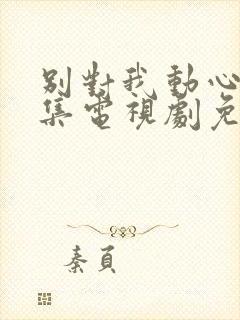 别對我動心
集電視劇免
秦頁